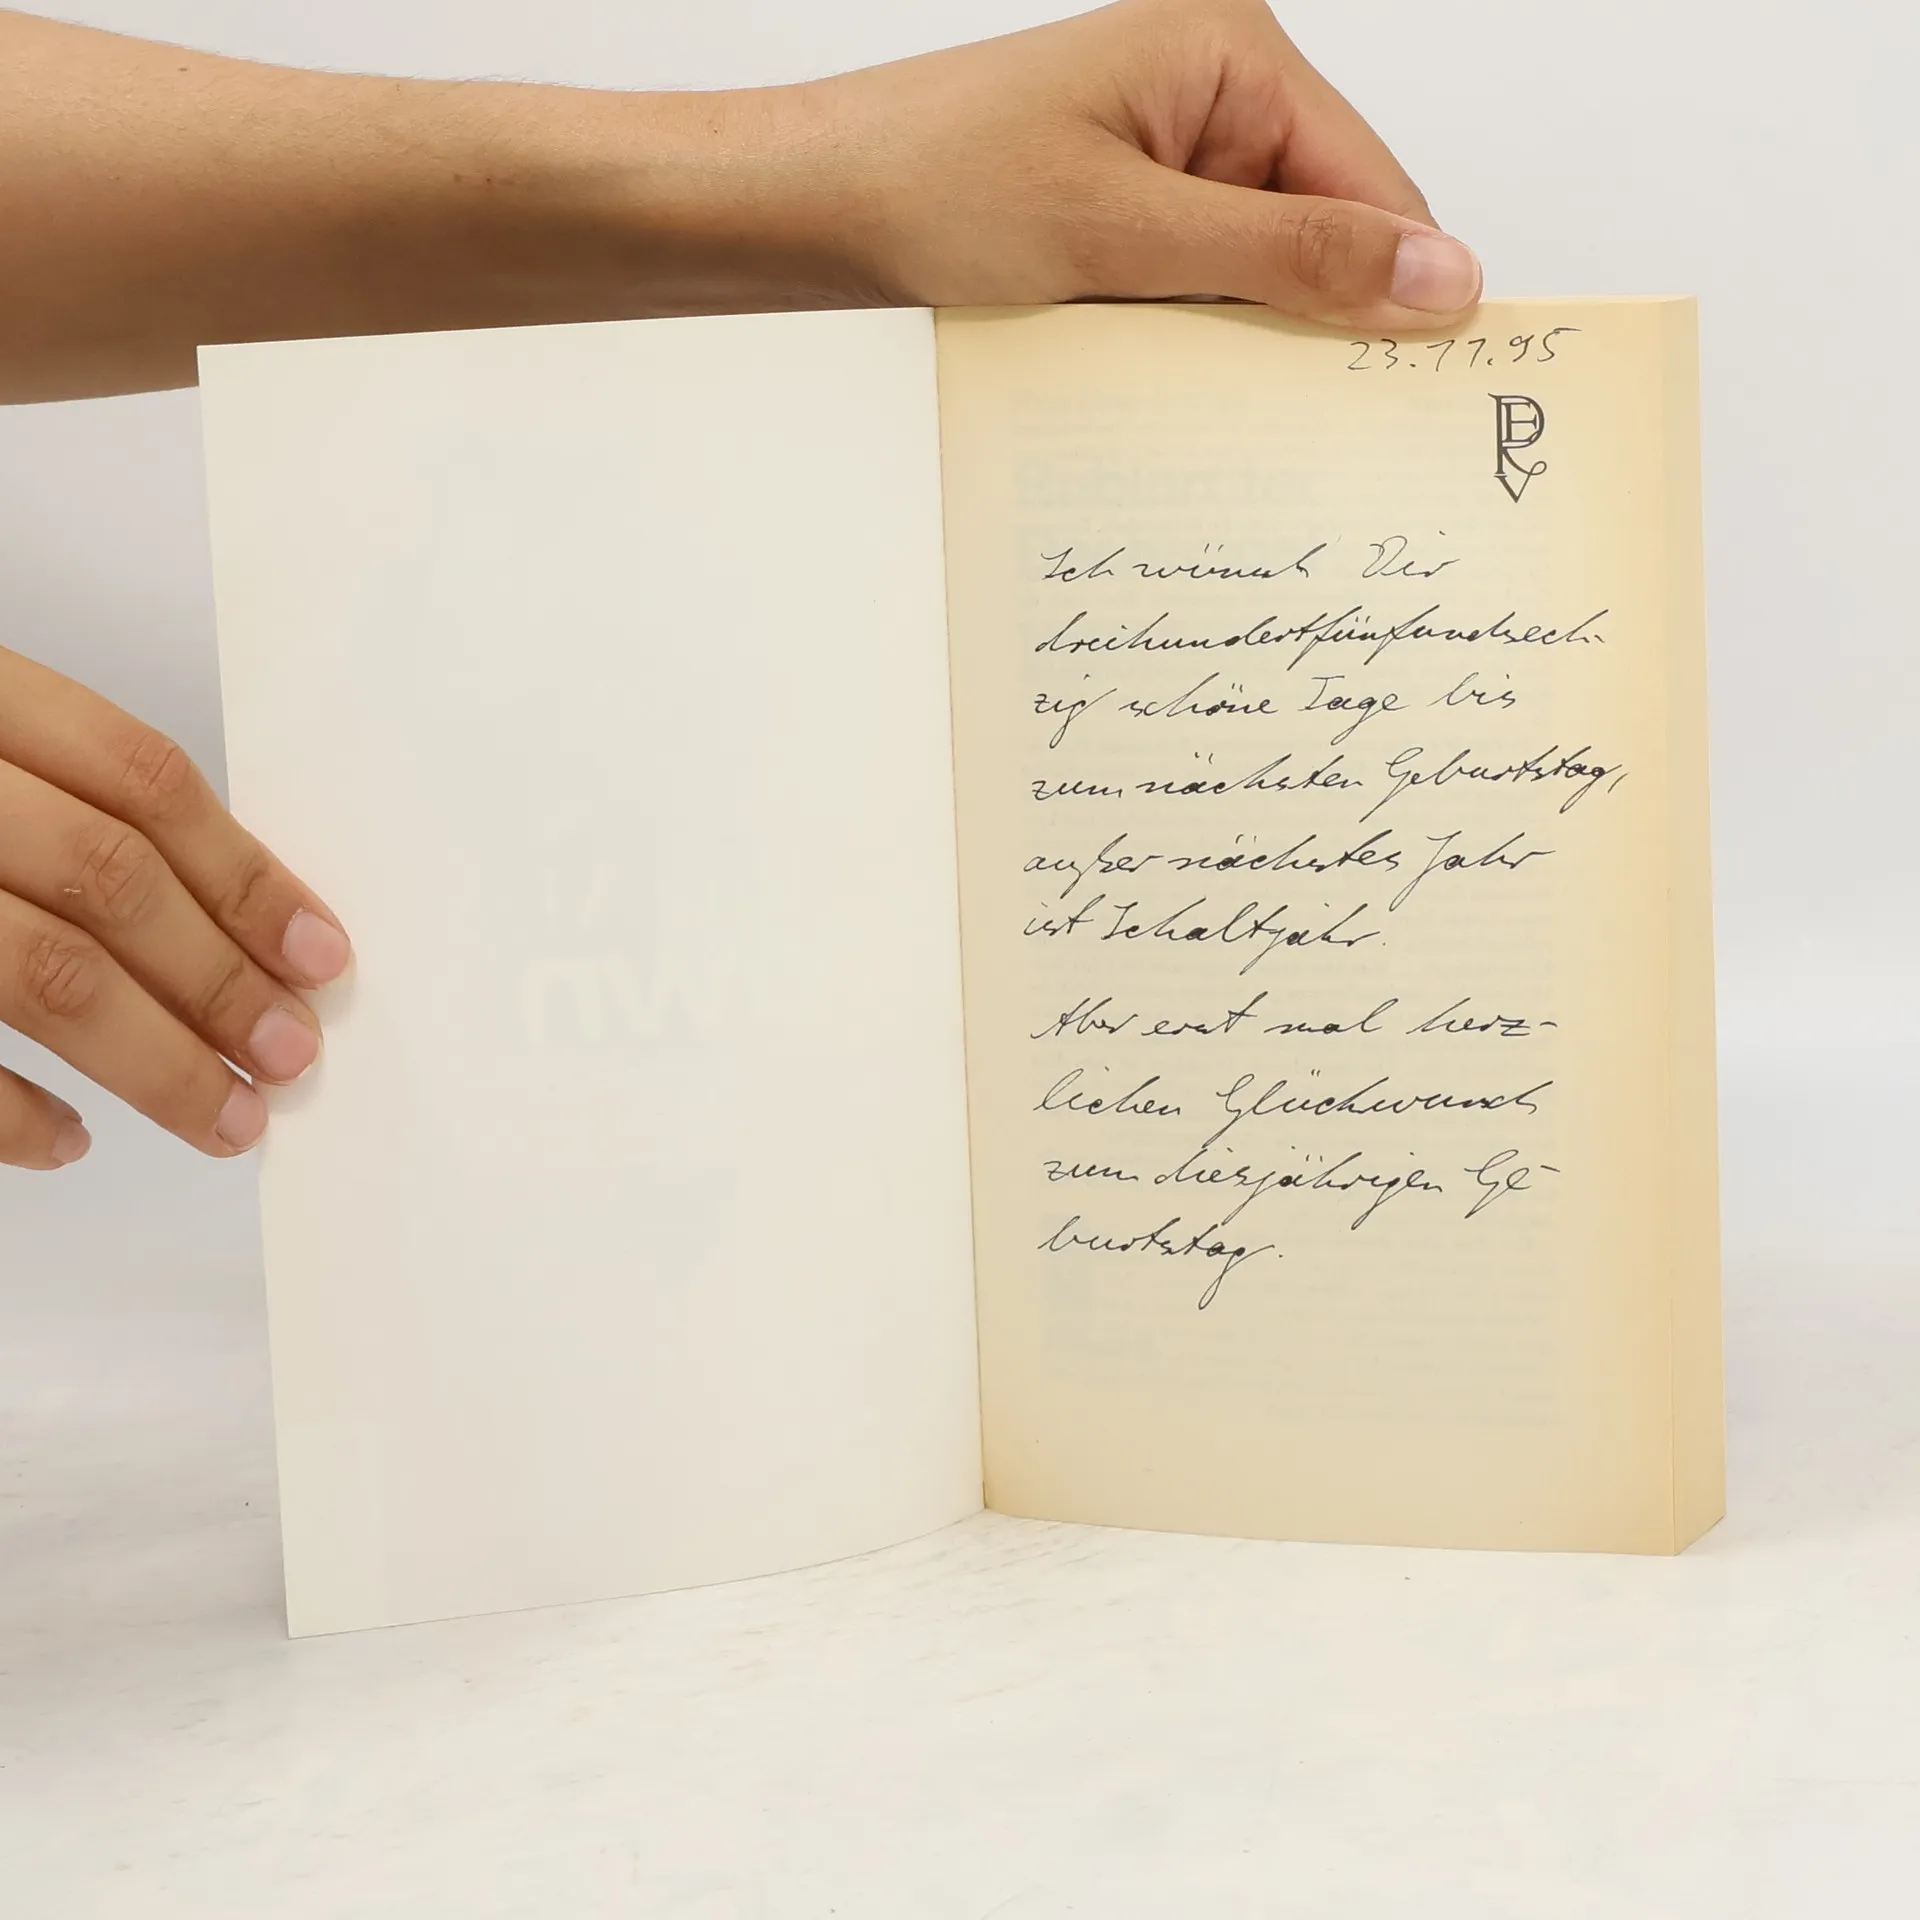 23.11.95
Ich wünsch Dir
dreihundertfünfundsech-
zig schöne Tage bis
zum nächsten Geburtstag,
außer nächstes Jahr
ist Schaltjahr.
Aber erst mal herz-
lichen Glückwunsch
zum diesjährigen Ge-
burtstag.